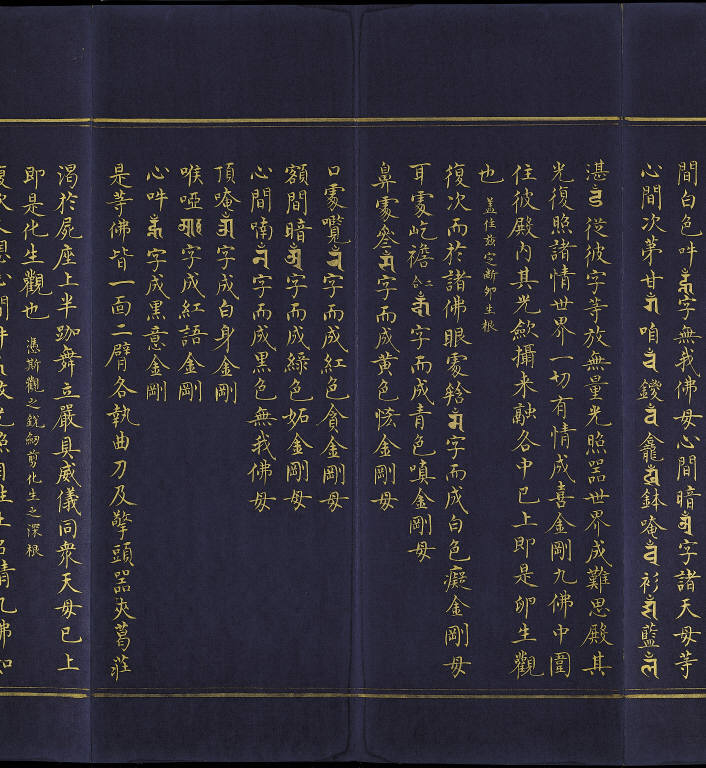 間白色吽ཧཱུྃ字無我佛母心間暗字諸天母等
心間次第甘咱鑁龕鉢唵衫藍
湛從彼字等放無量光照噐世界成難思殿其
光復照諸情世界一切有情成喜金剛九佛中圍
住彼殿内其光歛攝来融各中已上即是卵生觀
也 盖住兹定断卵生根
復次而於諸佛眼處字而成白色癡金剛母
耳處屹字而成青色嗔金剛母
鼻處字而成黄色悋金剛母
口處囕字而成紅色貪金剛母
額間暗字而成綠色妬金剛母
心間喃字而成黒色無我佛母
頂唵字成白身金剛
喉啞字成紅語金剛
心吽字成黒意金剛
是等佛皆一面二臂各執曲刀及擎頭噐夾葛莊
渴於屍座上半跏舞立嚴具威儀同衆天母已上
即是化生觀也 憑斯觀之鋭劒剪化生之深根